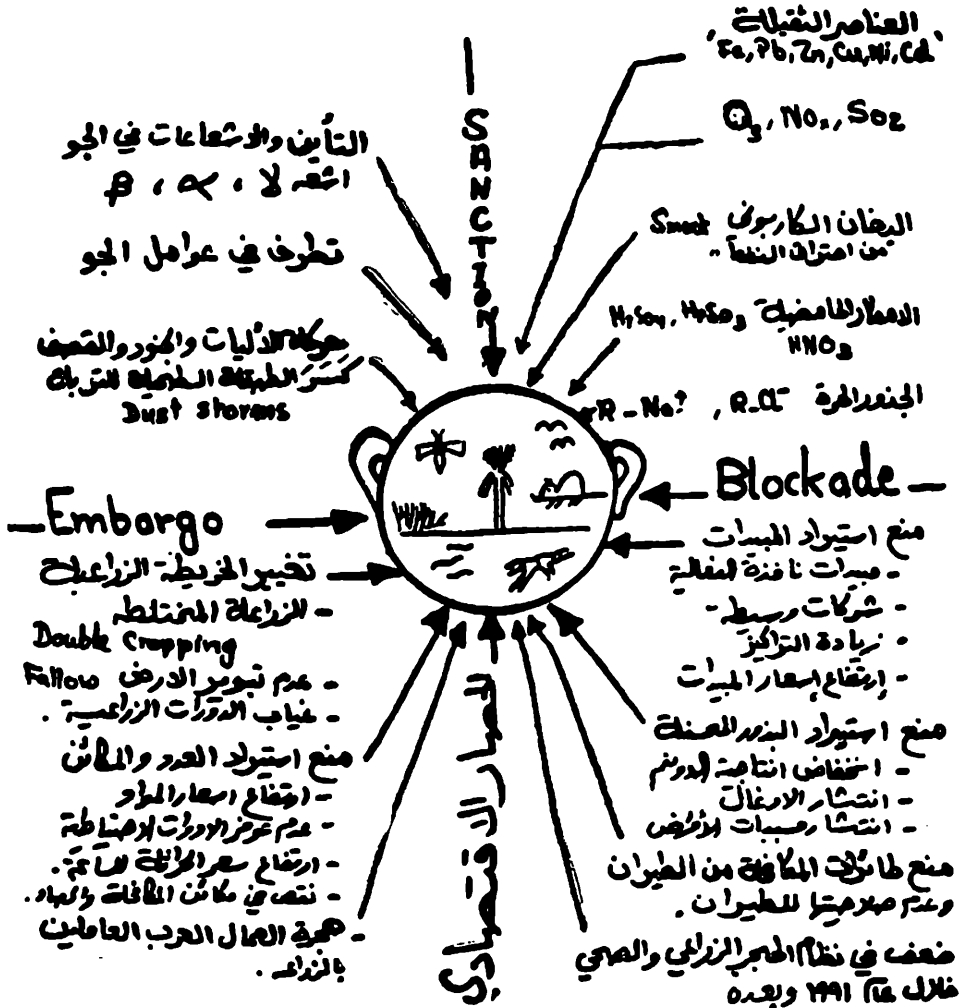 SANCTION
العناصر الثقيلة
Fe, Pb, Zn, Cu, Ni, Cd
O3, NOx, SO2
الدخان الكاربوني Smoct
من احتراق النفط
الامطار الحامضية H2So4, H2So3
HNO3
الجذور الحرة R-Cl , R-No?
التأين والاشعاعات في الجو
اشعه لا ، α ، β
تطرف في عوامل الجو
حركة الآليات والجنود والقصف
كسر الطبقة السطحية للتربة
Dust storems
Blockade
منع استيراد المبيدات
- مبيدات نافذة الفعالية
- شركات وسيطه -
- زيادة التراكيز
- إرتفاع إسعار المبيدات
منع استيراد البذور المحسنة
- انخفاض انتاجية الدونم
- انتشار الادغال
- انتشار مسببات الأمراض
منع طائرات المكافحة من الطيران
وعدم صلاحيتها للطيران .
ضعف في نظام الحجر الزراعي والصحي
خلال عام ١٩٩١ وبعده
Emborgo
تغيير الخريطة الزراعية
- الزراعة المختلطه
Double Cropping
- عدم تبوير الارض Fallow
- غياب الدورات الزراعية .
منع استيراد العدد والمكائن
- ارتفاع اسعار المواد
- عدم توفر الادوات الاحتياطية
- ارتفاع سعر الحراثة
- نقص في مكائن المكافحة
- هجرة العمال العرب العاملين
بالزراعه .
الحصار الاقتصادي